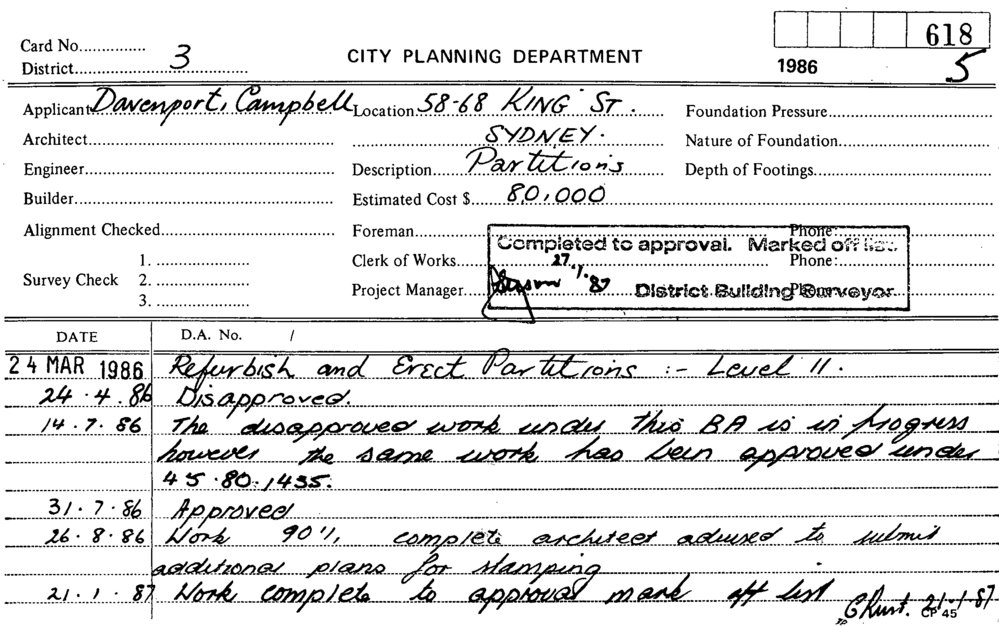 618
Card No...............
District 3
CITY PLANNING DEPARTMENT
1986 5
Applicant Davenport, Campbell Location 58-68 KING ST. Foundation Pressure
Architect SYDNEY. Nature of Foundation
Engineer Description Partitions Depth of Footings
Builder Estimated Cost $ 80,000
Alignment Checked Foreman Phone:
Completed to approval. Marked off list.
1. Clerk of Works 27.1.87 Phone:
Survey Check 2.
Project Manager District Building Surveyor Phone:
3.
DATE D.A. No. /
24 MAR 1986 Refurbish and Erect Partitions :- Level 11.
24.4.86 Disapproved.
14.7.86 The disapproved work under this BA is in progress
however the same work has been approved under
45.80.1435.
31.7.86 Approved
26.8.86 Work 90% complete architect advised to submit
additional plans for stamping
21.1.87 Work complete to approval mark off list
21.1.87
CP 45